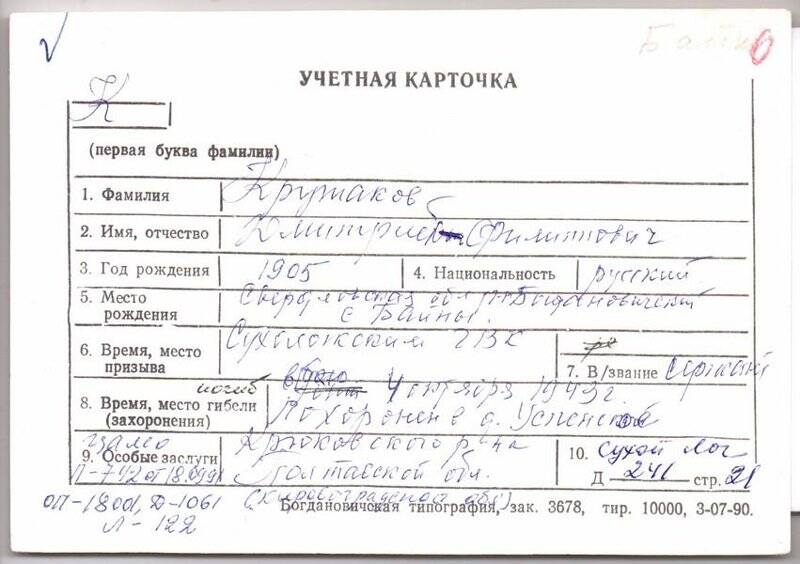 УЧЕТНАЯ КАРТОЧКА
К
(первая буква фамилии)
1. Фамилия
2. Имя, отчество Филиппович
3. Год рождения 1905 4. Национальность русский
5. Место рождения Свердловская обл. Богдановичский
с Байны.
6. Время, место призыва Сухоложским ГВК
7. В/звание сержант
8. Время, место гибели (захоронения) погиб в бою 4 октября 1943 г.
Похоронен в д. Успенской
9. Особые заслуги ЦАМО Крюковского р-на
Полтавской обл.
10. Сухой Лог
Д 241 стр. 21
ОП-18001, Д-1061 (Кировоградской обл)
Л-122
Богдановичская типография, зак. 3678, тир. 10000, 3-07-90.